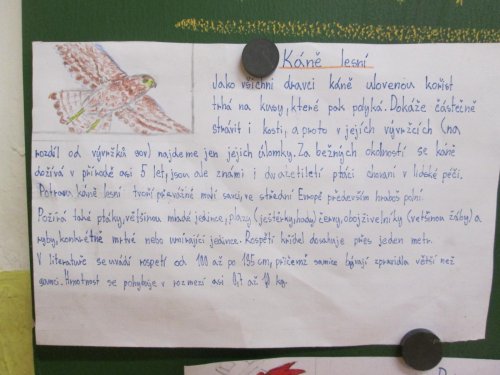 Káně lesní
Jako všichni dravci káně ulovenou kořist
trhá na kusy, které pak polyká. Dokáže částečně
strávit i kosti, a proto v jejích vývržcích (na
rozdíl od vývržků sov) najdeme jen jejich úlomky. Za běžných okolností se káně
dožívá v přírodě asi 5 let, jsou ale známi i dvacetiletí ptáci chovaní v lidské péči.
Potravu káně lesní tvoří převážně malí savci, ve střední Evropě především hraboš polní.
Požírá také ptáky, většinou mladé jedince, plazy (ještěrky, hady) červy, obojživelníky (většinou žáby) a
ryby, konkrétně mrtvé nebo umírající jedince. Rozpětí křídel dosahuje přes jeden metr.
V literatuře se uvádí rozpětí od 100 až po 135 cm, přičemž samice bývají zpravidla větší než
samci. Hmotnost se pohybuje v rozmezí asi 0,7 až kg.